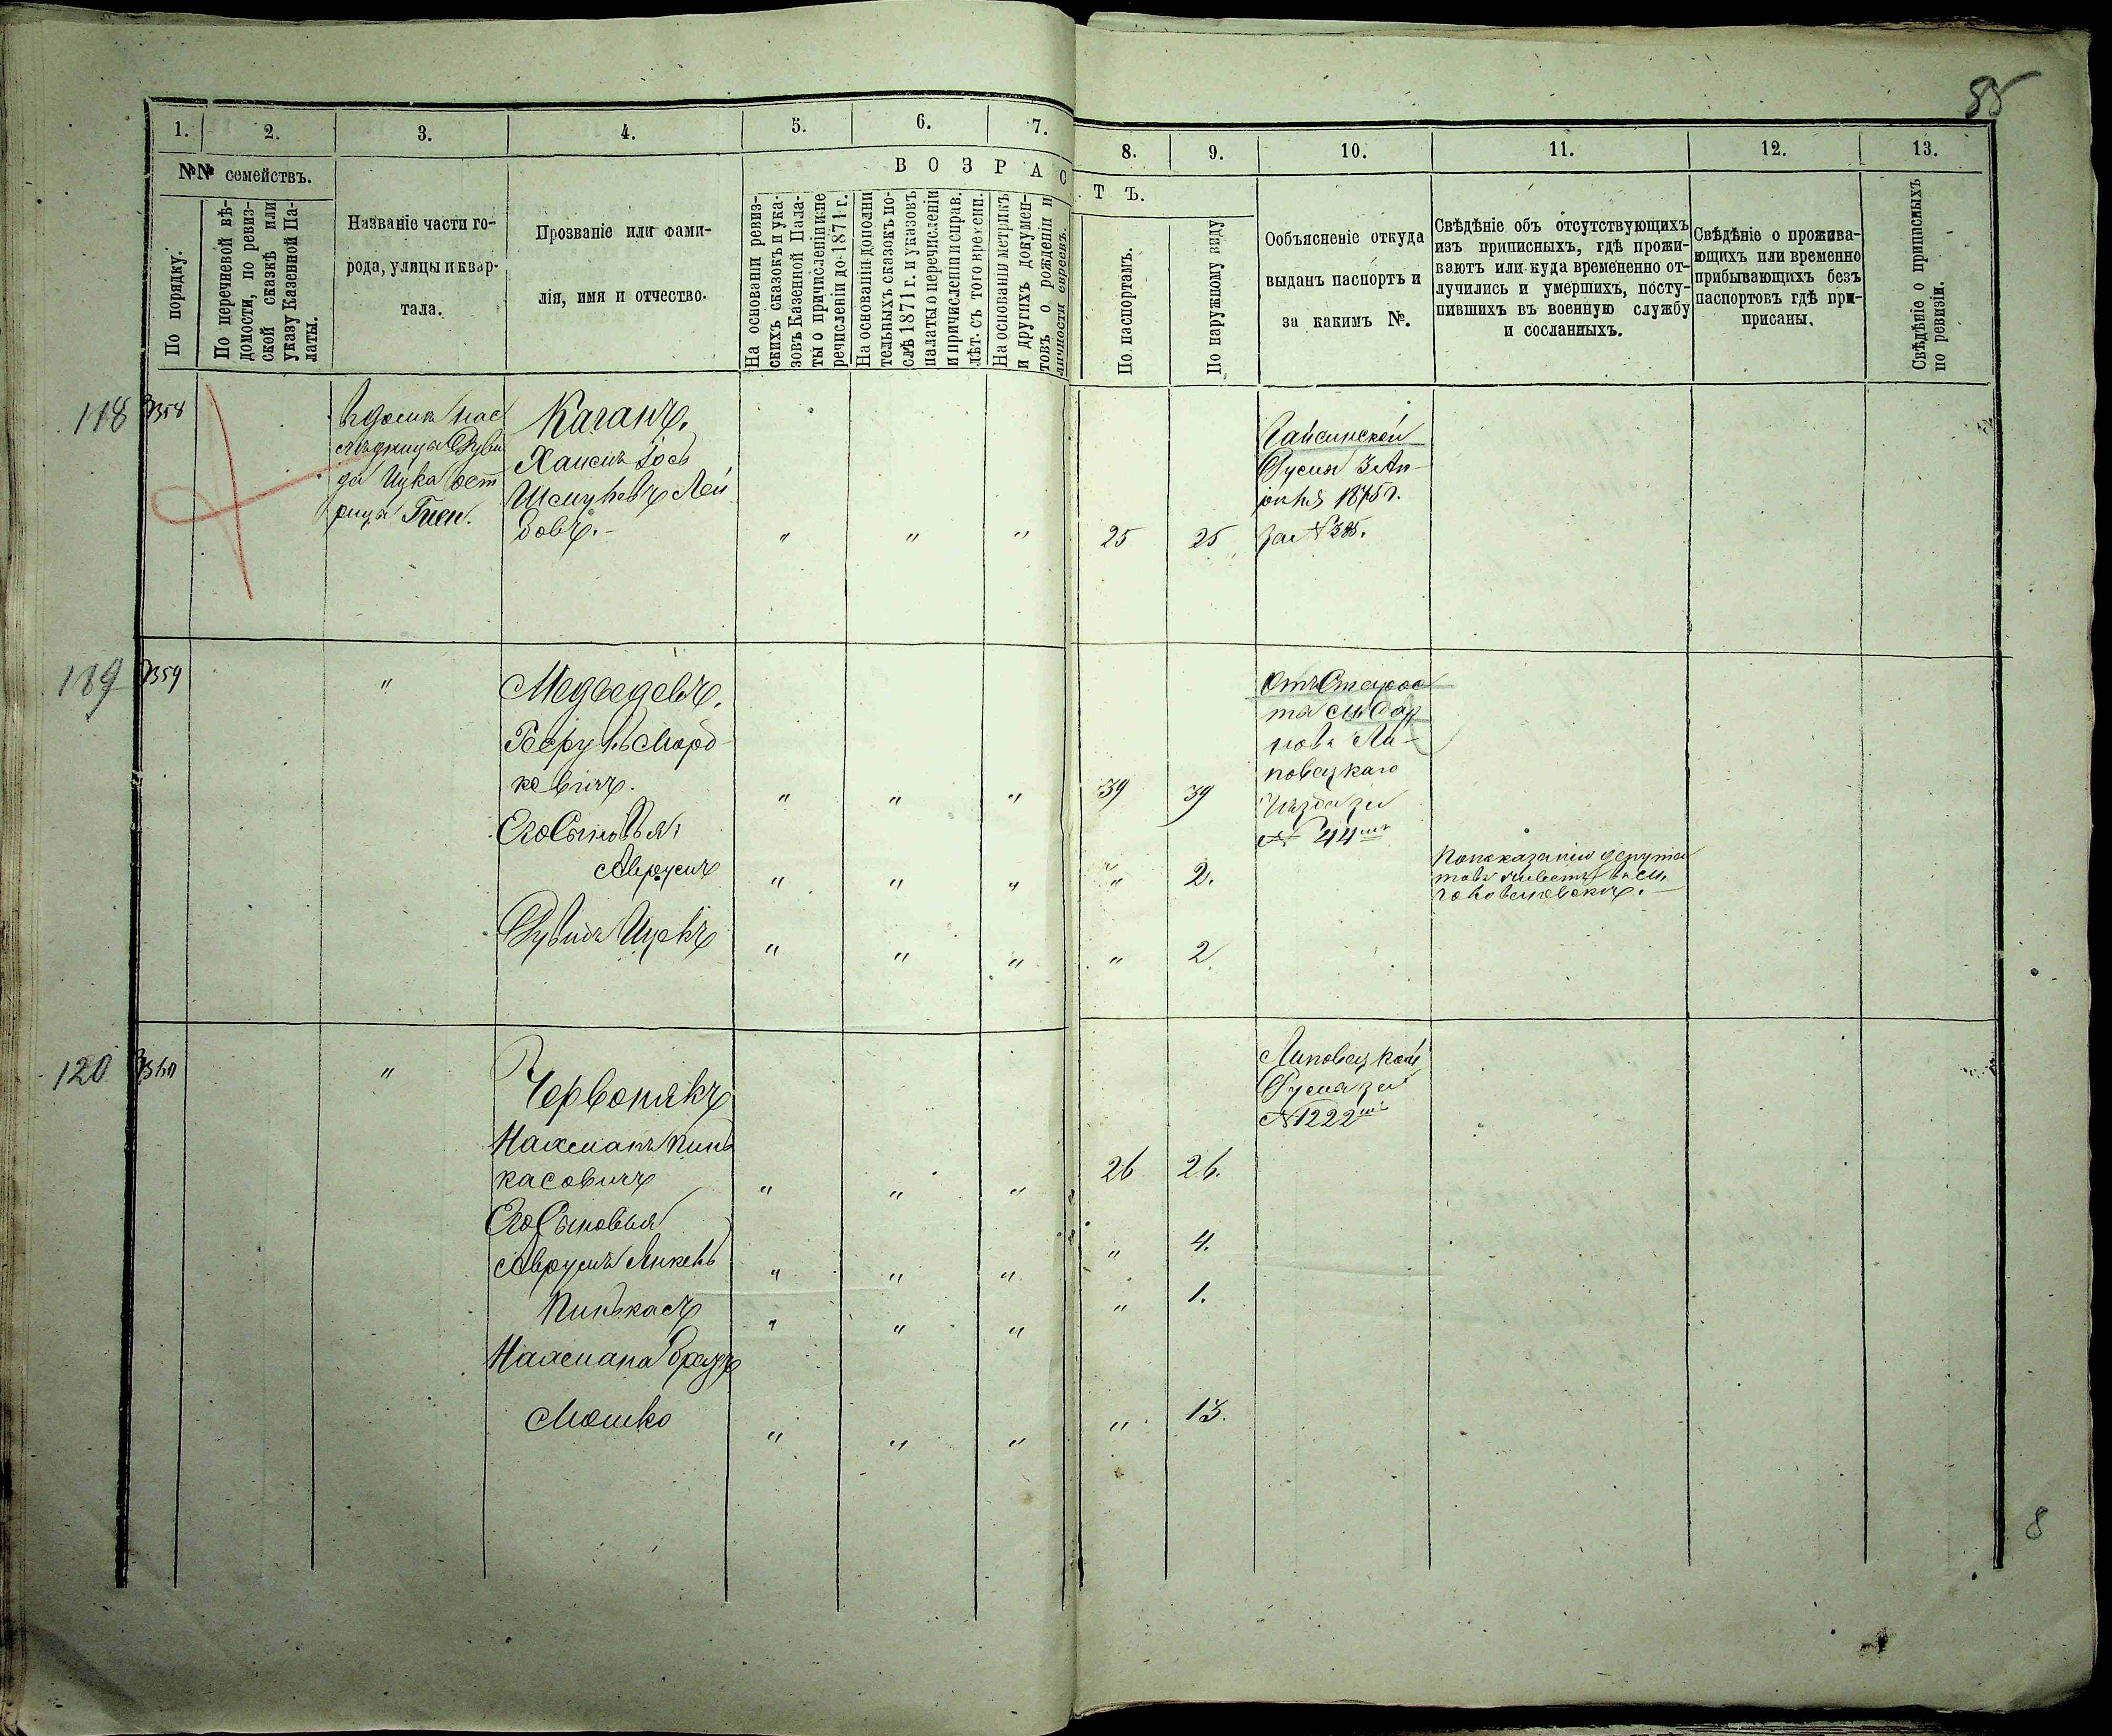 85
1. 2. 3. 4. 5. 6. 7. 8. 9. 10. 11. 12. 13.
№№ семействъ.
ВОЗРАСТЪ.
По порядку.
По перечневой вѣ-
домости, по ревиз-
ской сказкѣ или
указу Казенной Па-
латы.
Названіе части го-
рода, улицы и квар-
тала.
Прозваніе или фами-
лія, имя и отчество.
На основаніи ревиз-
скихъ сказокъ и ука-
зовъ Казенной Пала-
ты о причисленіи и пе
речисленіи до 1871 г.
На основаніи дополни
тельныхъ сказокъ по-
слѣ 1871 г. и указовъ
палаты о перечисленіи
и причисленіи и справ.
лѣт. съ того времени.
На основаніи метрикъ
и другихъ докумен-
товъ о рожденіи и
личности евреевъ.
По паспортамъ.
По наружному виду
Ообъясненіе откуда
выданъ паспортъ и
за какимъ №.
Свѣдѣніе объ отсутствующихъ
изъ приписныхъ, гдѣ прожи-
ваютъ или куда временно от-
лучились и умершихъ, посту-
пившихъ въ военную службу
и сосланныхъ.
Свѣдѣніе о прожива-
ющихъ или временно
прибывающихъ безъ
паспортовъ гдѣ при-
присаны.
Свѣдѣніе о приписныхъ
по ревизіи.
118
358
Каганъ.
Хаимъ Іось
Шмулевъ Лей
бовъ. " " " 25 25
Гайсинской
Думы
1875 г.
за №
119
359
"
Медведевъ.
Мord
ковичъ. " " " 39 39
Его Сыновья:
Аврумъ " " " " 2.
Дувидъ Ицекъ " " " " 2
Отъ Старос
та м.
нова Ли-
повецкаго
Уѣзда за
№ 44
По показанію депута
товъ живетъ въ м.
120
360
"
Червонякъ
Нахманъ Пинь
касовичъ " " " 26 26.
Его Сыновья
Аврумъ " " " " 4.
Пинькасъ " " " " 1.
Нахмана братъ
Мошко " " " " 13.
Липовецкой
Думы за
№ 1222
8